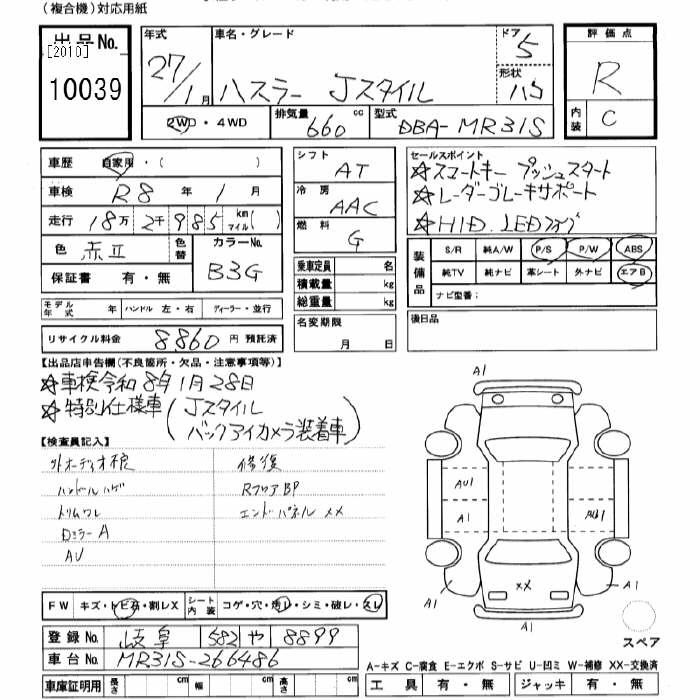 (複合機)対応用紙
出品No. [2010] 10039
年式 27/1月
車名・グレード ハスラー Jスタイル
ドア 5
形状 ハコ
評価点 R
内装 C
2WD・4WD
排気量 660 cc
型式 DBA-MR31S
車歴 自家用・( )
車検 R8年1月
走行 18万2千985km マイル( )
色 赤II
色替
カラーNo. B3G
保証書 有・無
モデル年式 年
ハンドル 左・右
ディーラー・並行
リサイクル料金 8860円 預託済
シフト AT
冷房 AAC
燃料 G
乗車定員 名
積載量 kg
総重量 kg
名変期限 月 日
セールスポイント
☆スマートキー プッシュスタート
☆レーダーブレーキサポート
☆HID. LEDフォグ
装備品
S/R 純A/W P/S P/W ABS
純TV 純ナビ 革シート 外ナビ エアB
ナビ型番:
後日品
【出品店申告欄(不良箇所・欠品・注意事項等)】
☆車検令和8年1月28日
☆特別仕様車(Jスタイル
バックアイカメラ装着車)
【検査員記入】
外オーディオ枠 修復
ハンドルハゲ RフロアBP
トリムワレ エンドパネルXX
DミラーA
AU
A1
AU1
A1
AUU1
XX
A1
A1
A1
スペア
FW キズ・トビ石・割レX
シート内装 コゲ・穴・汚レ・シミ・破レ・スレ
登録No. 岐阜 582 や 8899
車台No. MR31S-266486
車庫証明用 長さ cm 幅 cm 高さ cm
A-キズ C-腐食 E-エクボ S-サビ U-凹ミ W-補修 XX-交換済
工具 有・無 ジャッキ 有・無